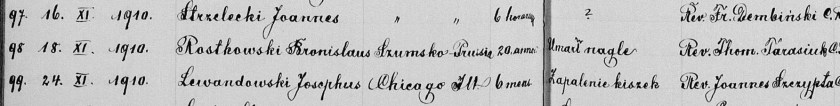 97. 16. XI. 1910. Strzelecki Joannes " " 6 horarum ? Rev. Fr. Dembiński C.R.
98 18. XI. 1910. Rostkowski Bronislaus Szumsko Prussia 20. anno. Umarł nagle Rev. Thom. Tarasiuk C.
99. 24. XI. 1910. Lewandowski Josephus Chicago Ill. 6 mens. Zapalenie kiszek Rev. Joannes Szczypta C.